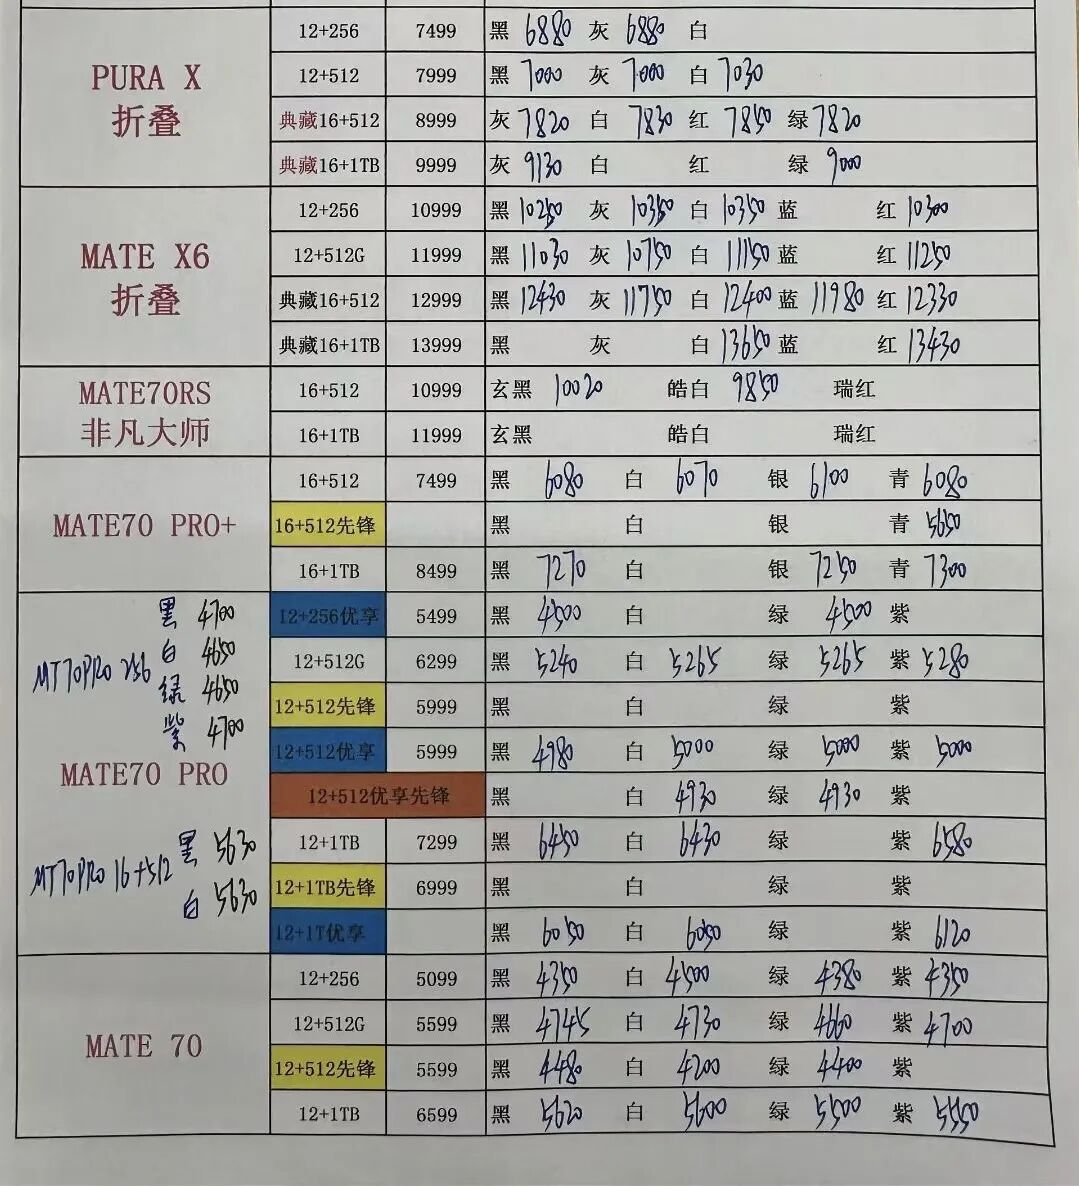 12+256 7499 黑 6880 灰 6880 白
PURA X
折叠
12+512 7999 黑 7000 灰 7000 白 7030
典藏16+512 8999 灰 7820 白 7830 红 7850 绿 7820
典藏16+1TB 9999 灰 9130 白 红 绿 9000
12+256 10999 黑 10250 灰 10350 白 10350 蓝 红 10300
MATE X6
折叠
12+512G 11999 黑 11030 灰 10750 白 11150 蓝 红 11250
典藏16+512 12999 黑 12430 灰 11750 白 12400 蓝 11980 红 12330
典藏16+1TB 13999 黑 灰 白 13650 蓝 红 13430
MATE70RS
非凡大师
16+512 10999 玄黑 10020 皓白 9850 瑞红
16+1TB 11999 玄黑 皓白 瑞红
16+512 7499 黑 6080 白 6070 银 6100 青 6080
MATE70 PRO+
16+512先锋 黑 白 银 青 5650
16+1TB 8499 黑 7270 白 银 7250 青 7300
MT70PRO 256
黑 4700
白 4650
绿 4650
紫 4700
MATE70 PRO
MT70PRO 16+512
黑 5630
白 5630
12+256优享 5499 黑 4500 白 绿 4500 紫
12+512G 6299 黑 5240 白 5265 绿 5265 紫 5280
12+512先锋 5999 黑 白 绿 紫
12+512优享 5999 黑 4980 白 5000 绿 5000 紫 5000
12+512优享先锋 黑 白 4930 绿 4930 紫
12+1TB 7299 黑 6450 白 6430 绿 紫 6580
12+1TB先锋 6999 黑 白 绿 紫
12+1T优享 黑 6050 白 6050 绿 紫 6120
MATE 70
12+256 5099 黑 4350 白 4500 绿 4380 紫 4350
12+512G 5599 黑 4745 白 4730 绿 4660 紫 4700
12+512先锋 5599 黑 4480 白 4200 绿 4400 紫
12+1TB 6599 黑 5620 白 5600 绿 5500 紫 5550